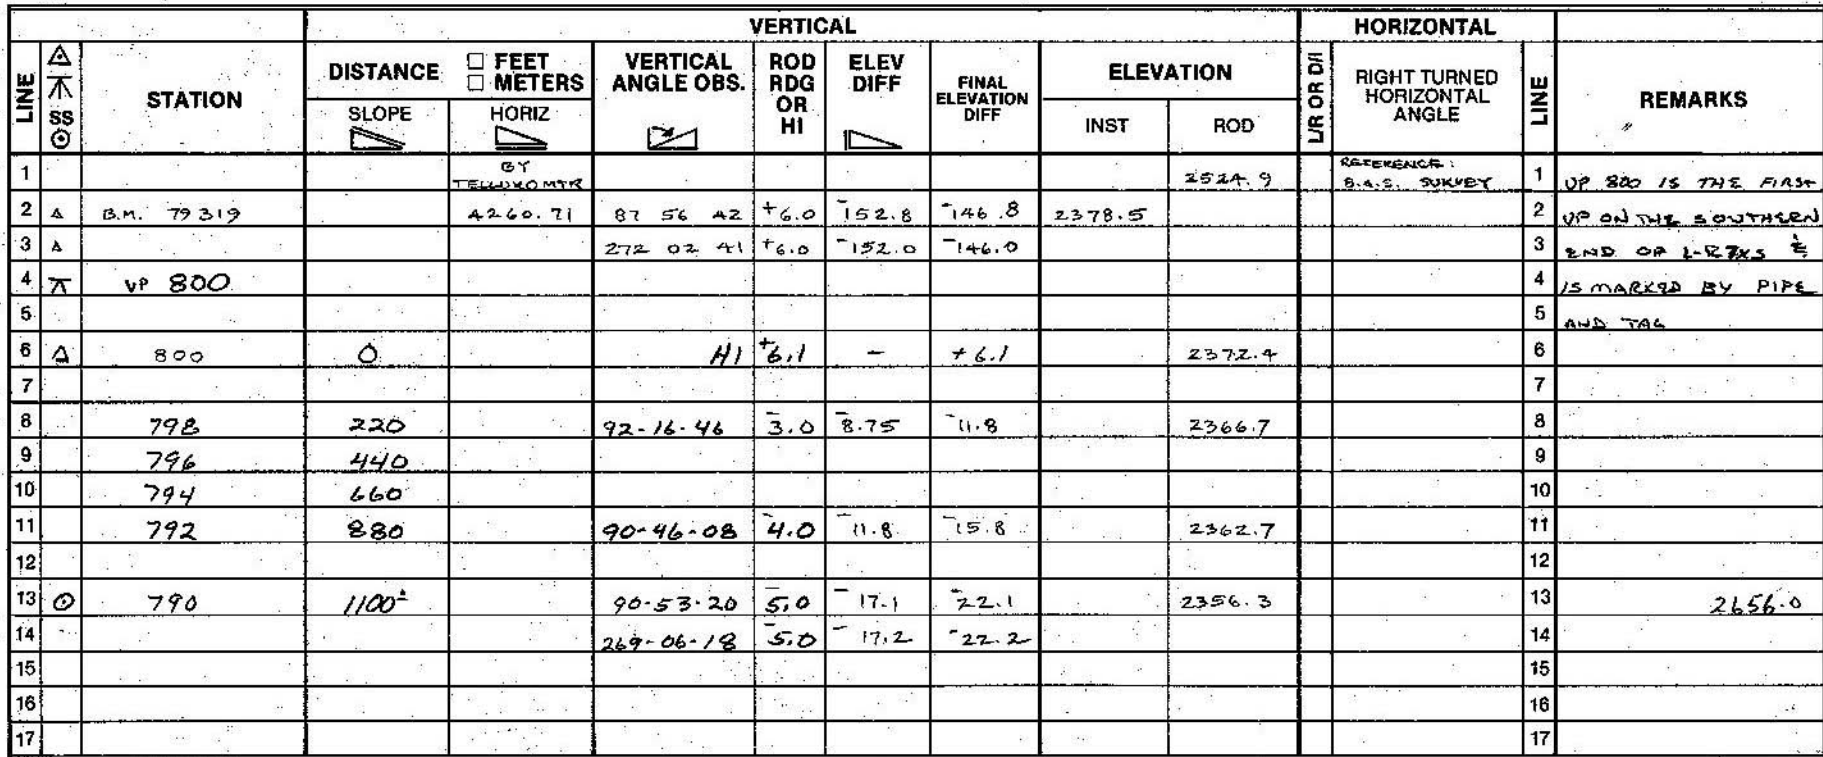 VERTICAL HORIZONTAL
LINE SS STATION DISTANCE □ FEET □ METERS SLOPE HORIZ VERTICAL ANGLE OBS. ROD RDG OR HI ELEV DIFF FINAL ELEVATION DIFF ELEVATION INST ROD L/R OR D/I RIGHT TURNED HORIZONTAL ANGLE LINE REMARKS
1 BY TELLUROMTR 2524.9 REFERENCE: SURVEY 1 VP 800 IS THE FIRST
2 △ B.M. 79319 4260.71 87 56 42 +6.0 -152.8 -146.8 2378.5 2 VP ON THE SOUTHERN
3 △ 272 02 41 +6.0 -152.0 -146.0 3 END OF &
4 VP 800 4 IS MARKED BY PIPE
5 5 AND TAG
6 △ 800 0 HI +6.1 - +6.1 2372.4 6
7 7
8 798 220 92-16-46 -3.0 -8.75 -11.8 2366.7 8
9 796 440 9
10 794 660 10
11 792 880 90-46-08 -4.0 -11.8 -15.8 2362.7 11
12 12
13 ⊙ 790 1100± 90-53-20 -5.0 -17.1 -22.1 2356.3 13 2656.0
14 269-06-18 -5.0 -17.2 -22.2 14
15 15
16 16
17 17